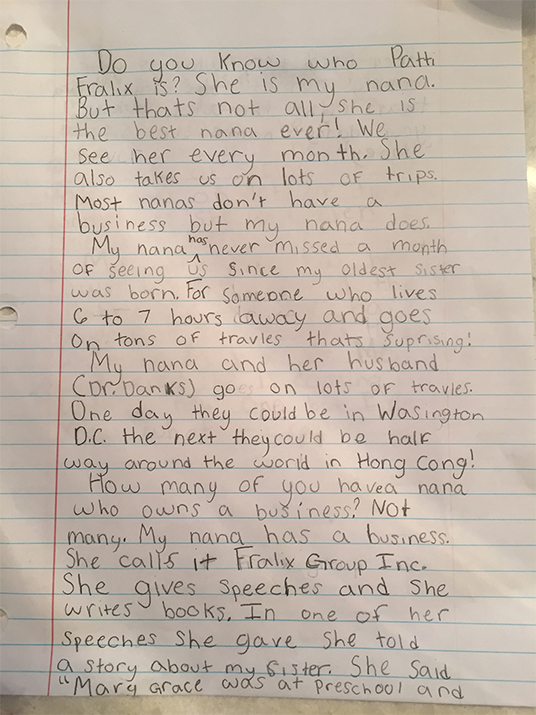 Do you know who Patti
Fralix is? She is my nana.
But thats not all, she is
the best nana ever! We
see her every month. She
also takes us on lots of trips.
Most nanas don't have a
business but my nana does.
My nana has never missed a month
of seeing us since my oldest sister
was born. For someone who lives
6 to 7 hours away and goes
on tons of travles thats suprising!
My nana and her husband
(Dr. Danks) go on lots of travles.
One day they could be in Wasington
D.C. the next they could be half
way around the world in Hong Cong!
How many of you have a nana
who owns a business? Not
many. My nana has a business.
She calls it Fralix Group Inc.
She gives speeches and she
writes books. In one of her
speeches she gave she told
a story about my sister. She said
"Mary Grace was at preschool and